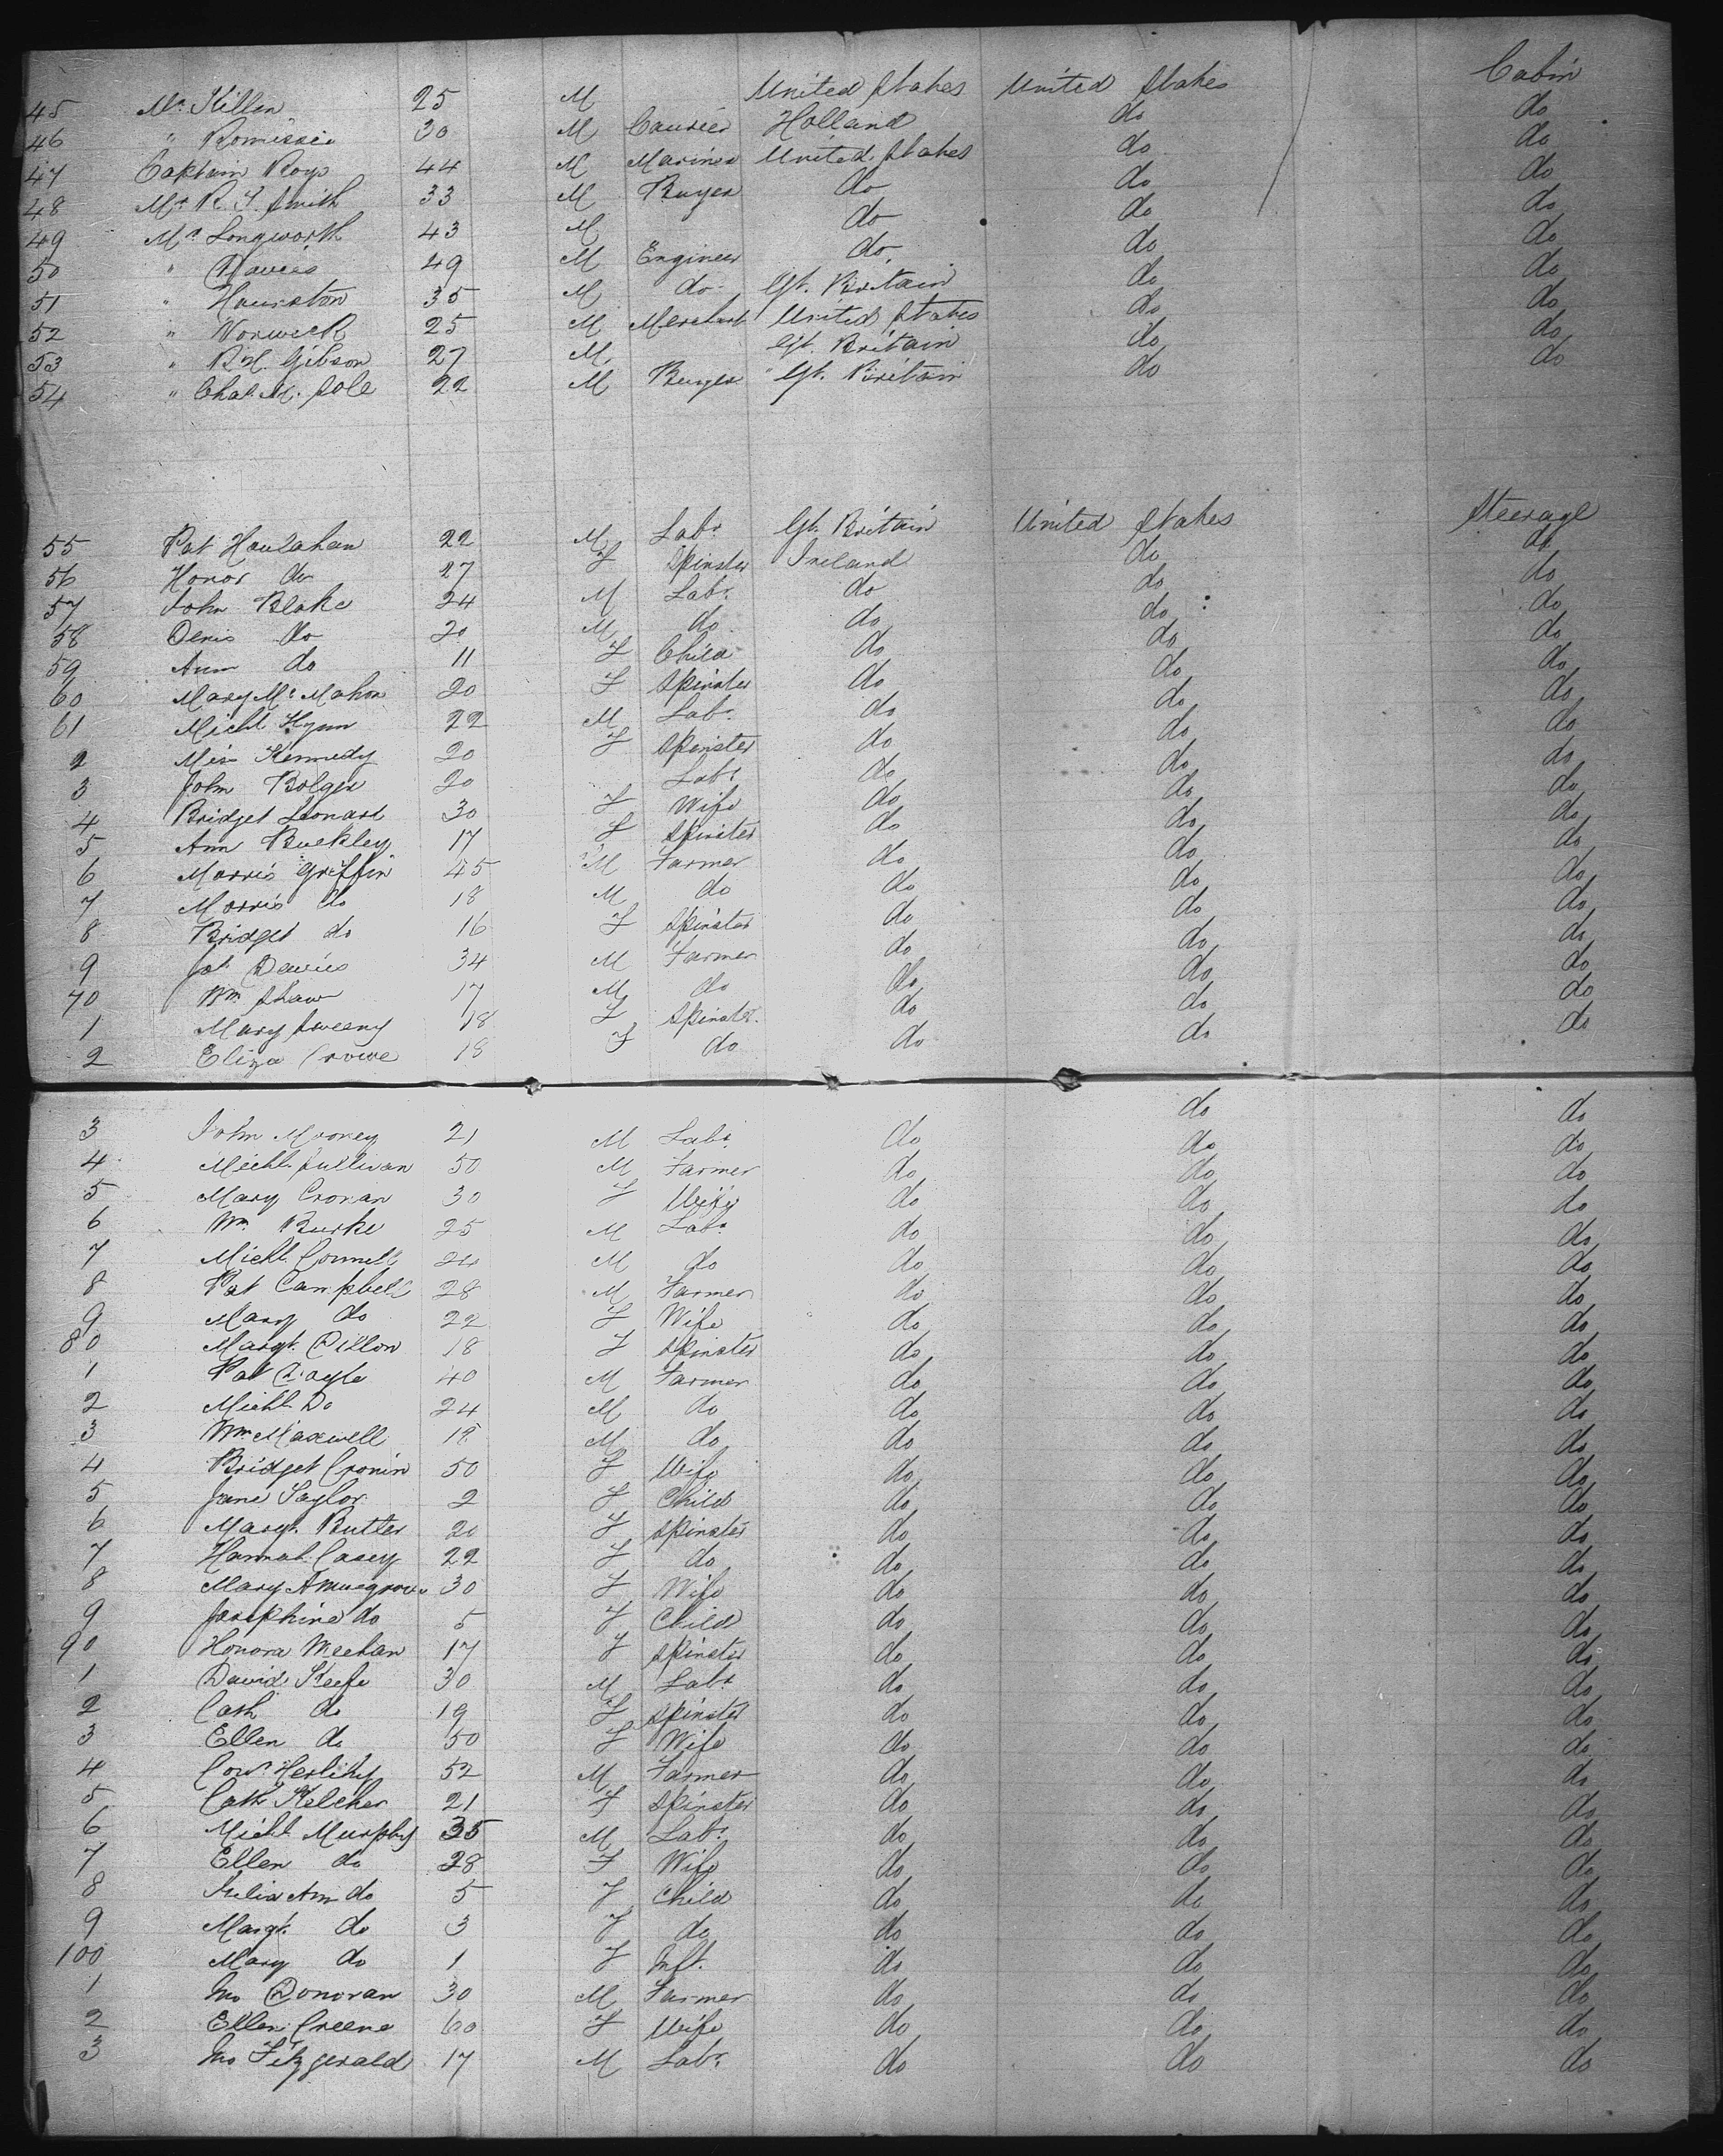 45 Mr. Killen 25 M United States United States Cabin
46 " Romissie 30 M Courier Holland do do
47 Captain Roys 44 M Mariner United States do do
48 Mr. R. S. Smith 33 M Buyer do do do
49 Mr. Longworth 43 M do do do
50 " Davies 49 M Engineer do do do
51 " Houston 35 M do Gt. Britain do do
52 " Norweck 25 M Merchant United States do do
53 " R. H. Gibson 27 M Gt. Britain do do
54 " Chas. M. Sole 22 M Buyer " Gt. Britain do do
55 Pat Houlahan 22 M Labr. Gt. Britain United States Steerage
56 Honor do 27 F Spinster Ireland do do
57 John Blake 24 M Labr. do do do
58 Denis do 20 M do do do do
59 Ann do 11 F Child do do do
60 Mary McMahon 20 F Spinster do do do
61 Michl. 22 M Labr. do do do
2 Miss Kennedy 20 F Spinster do do do
3 John Bolger 20 Labr. do do do
4 Bridget Leonard 30 F Wife do do do
5 Ann Buckley 17 F Spinster do do do
6 Morris Griffin 45 M Farmer do do do
7 Morris do 18 M do do do do
8 Bridget do 16 F Spinster do do do
9 Jas. Davies 34 M Farmer do do do
70 Wm. Shaw 17 M do do do do
1 Mary Sweeny 18 F Spinster do do do
2 Eliza Crowe 18 F do do do do
3 John Mooney 21 M Labr. do do do
4 Michl. Sullivan 50 M Farmer do do do
5 Mary Cronan 30 F Wife do do do
6 Wm. Burke 25 M Labr. do do do
7 Michl. Connell 24 M do do do do
8 Pat Campbell 28 M Farmer do do do
9 Mary do 22 F Wife do do do
80 Margt. Dillon 18 F Spinster do do do
1 Pat Doyle 40 M Farmer do do do
2 Michl. Do 24 M do do do do
3 Wm. Maxwell 18 M do do do do
4 Bridget Cronin 50 F Wife do do do
5 Jane Taylor 2 F Child do do do
6 Margt. Butler 20 F Spinster do do do
7 Hannah Casey 22 F do do do do
8 Mary A 30 F Wife do do do
9 Josephine do 5 F Child do do do
90 Honora Meehan 17 F Spinster do do do
1 David Keefe 30 M Labr. do do do
2 Cath do 19 F Spinster do do do
3 Ellen do 50 F Wife do do do
4 Corn. Herlihy 52 M Farmer do do do
5 Cath Kelcher 21 F Spinster do do do
6 Michl. Murphy 35 M Labr. do do do
7 Ellen do 28 F Wife do do do
8 Julia Ann do 5 F Child do do do
9 Margt. do 3 F do do do do
100 Mary do 1 F Inft. do do do
1 Jno Donovan 30 M Farmer do do do
2 Ellen Greene 60 F Wife do do do
3 Jno Fitzgerald 17 M Labr. do do do